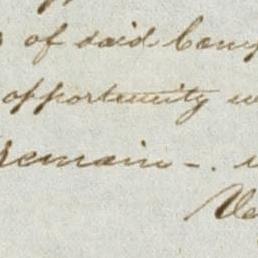 of said Comp
opportunity w
remain -.
Ve